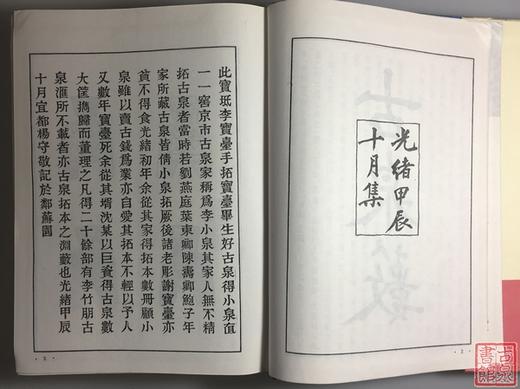 光緒甲辰
十月集
· 2 ·
此寶坻李寶臺手拓寶臺畢生好古泉得小泉直
一一窖京市古泉家稱爲李小泉其家人無不精
拓古泉者當時若劉燕庭葉東卿陳壽卿鮑子年
家所藏古泉皆倩小泉拓厥後諸老彫謝寶臺亦
貧不得食光緒初年余從其家得拓本數冊顧小
泉雖以賣古錢爲業亦自愛其拓本不輕以予人
又數年寶臺死余從其壻沈某以巨貲得古泉數
大筐擕歸而董理之凡得二十餘部有李竹朋古
泉滙所不載者亦古泉拓本之淵藪也光緒甲辰
十月宜都楊守敬記於鄰蘇園
· 3 ·